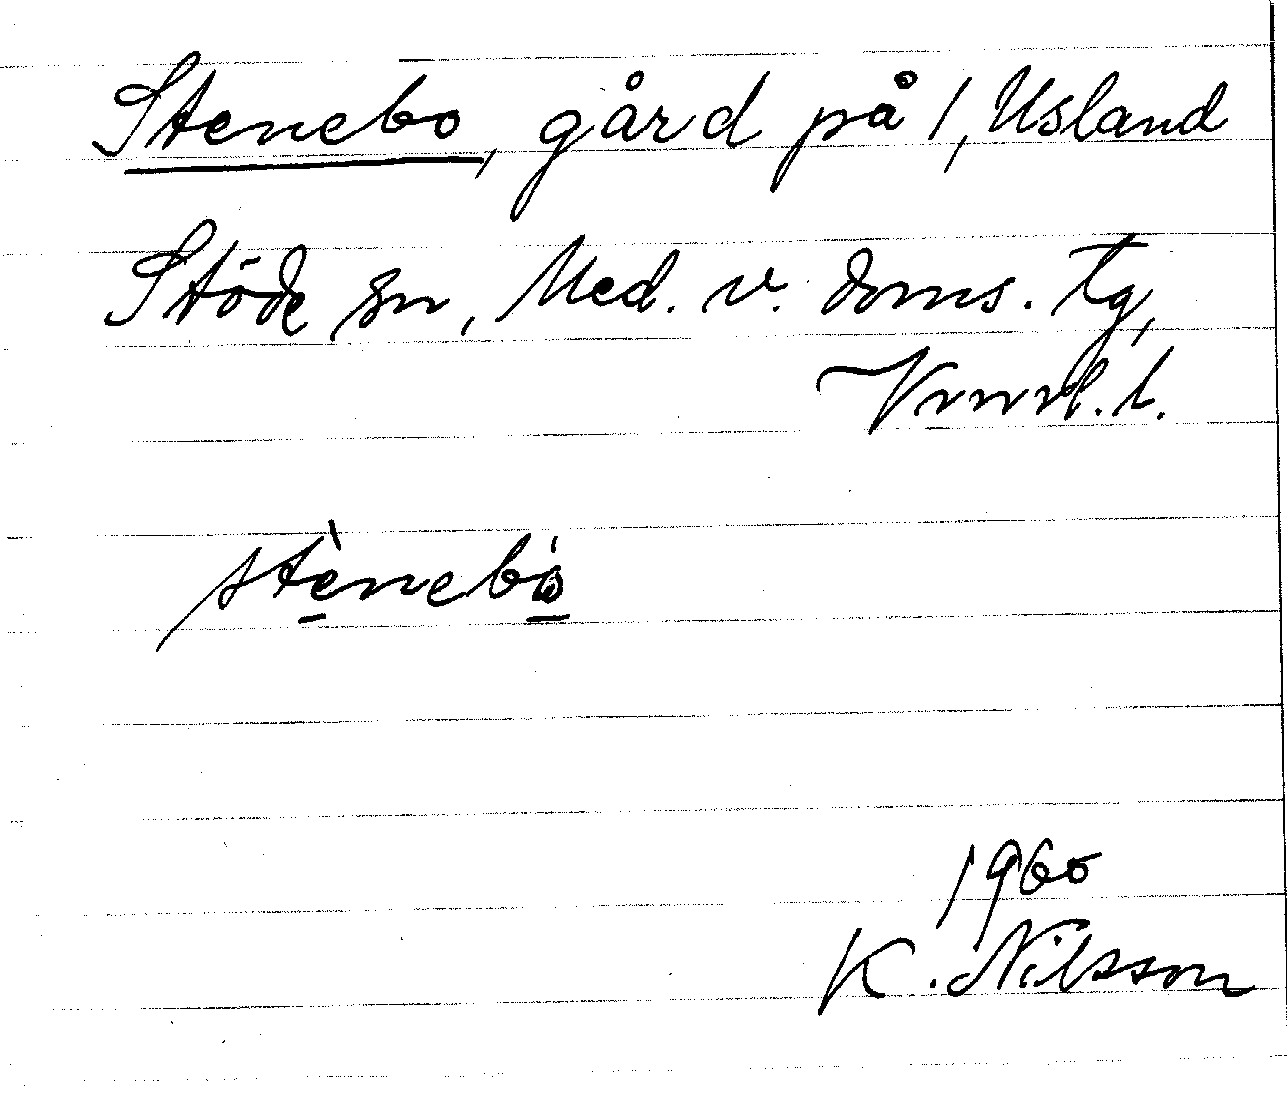 Stenebo, gård på 1, Usland
Stöde sn, Med. v. doms. tg,
Vnrrl. l.
stènebò
1960
K. Nilsson